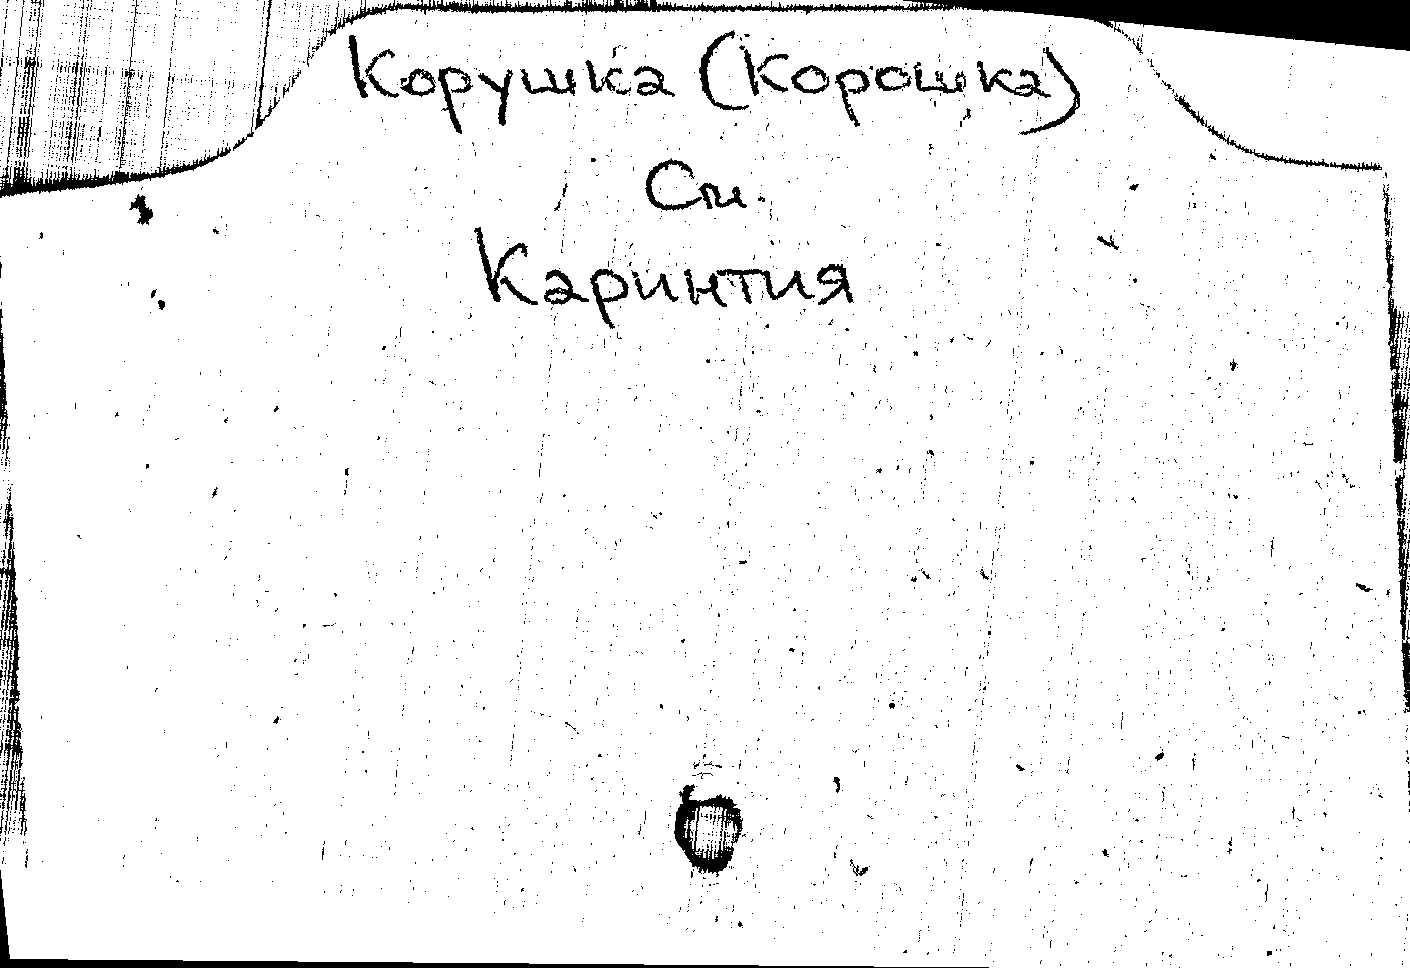 Корушка (Корошка)
См.
Каринтия